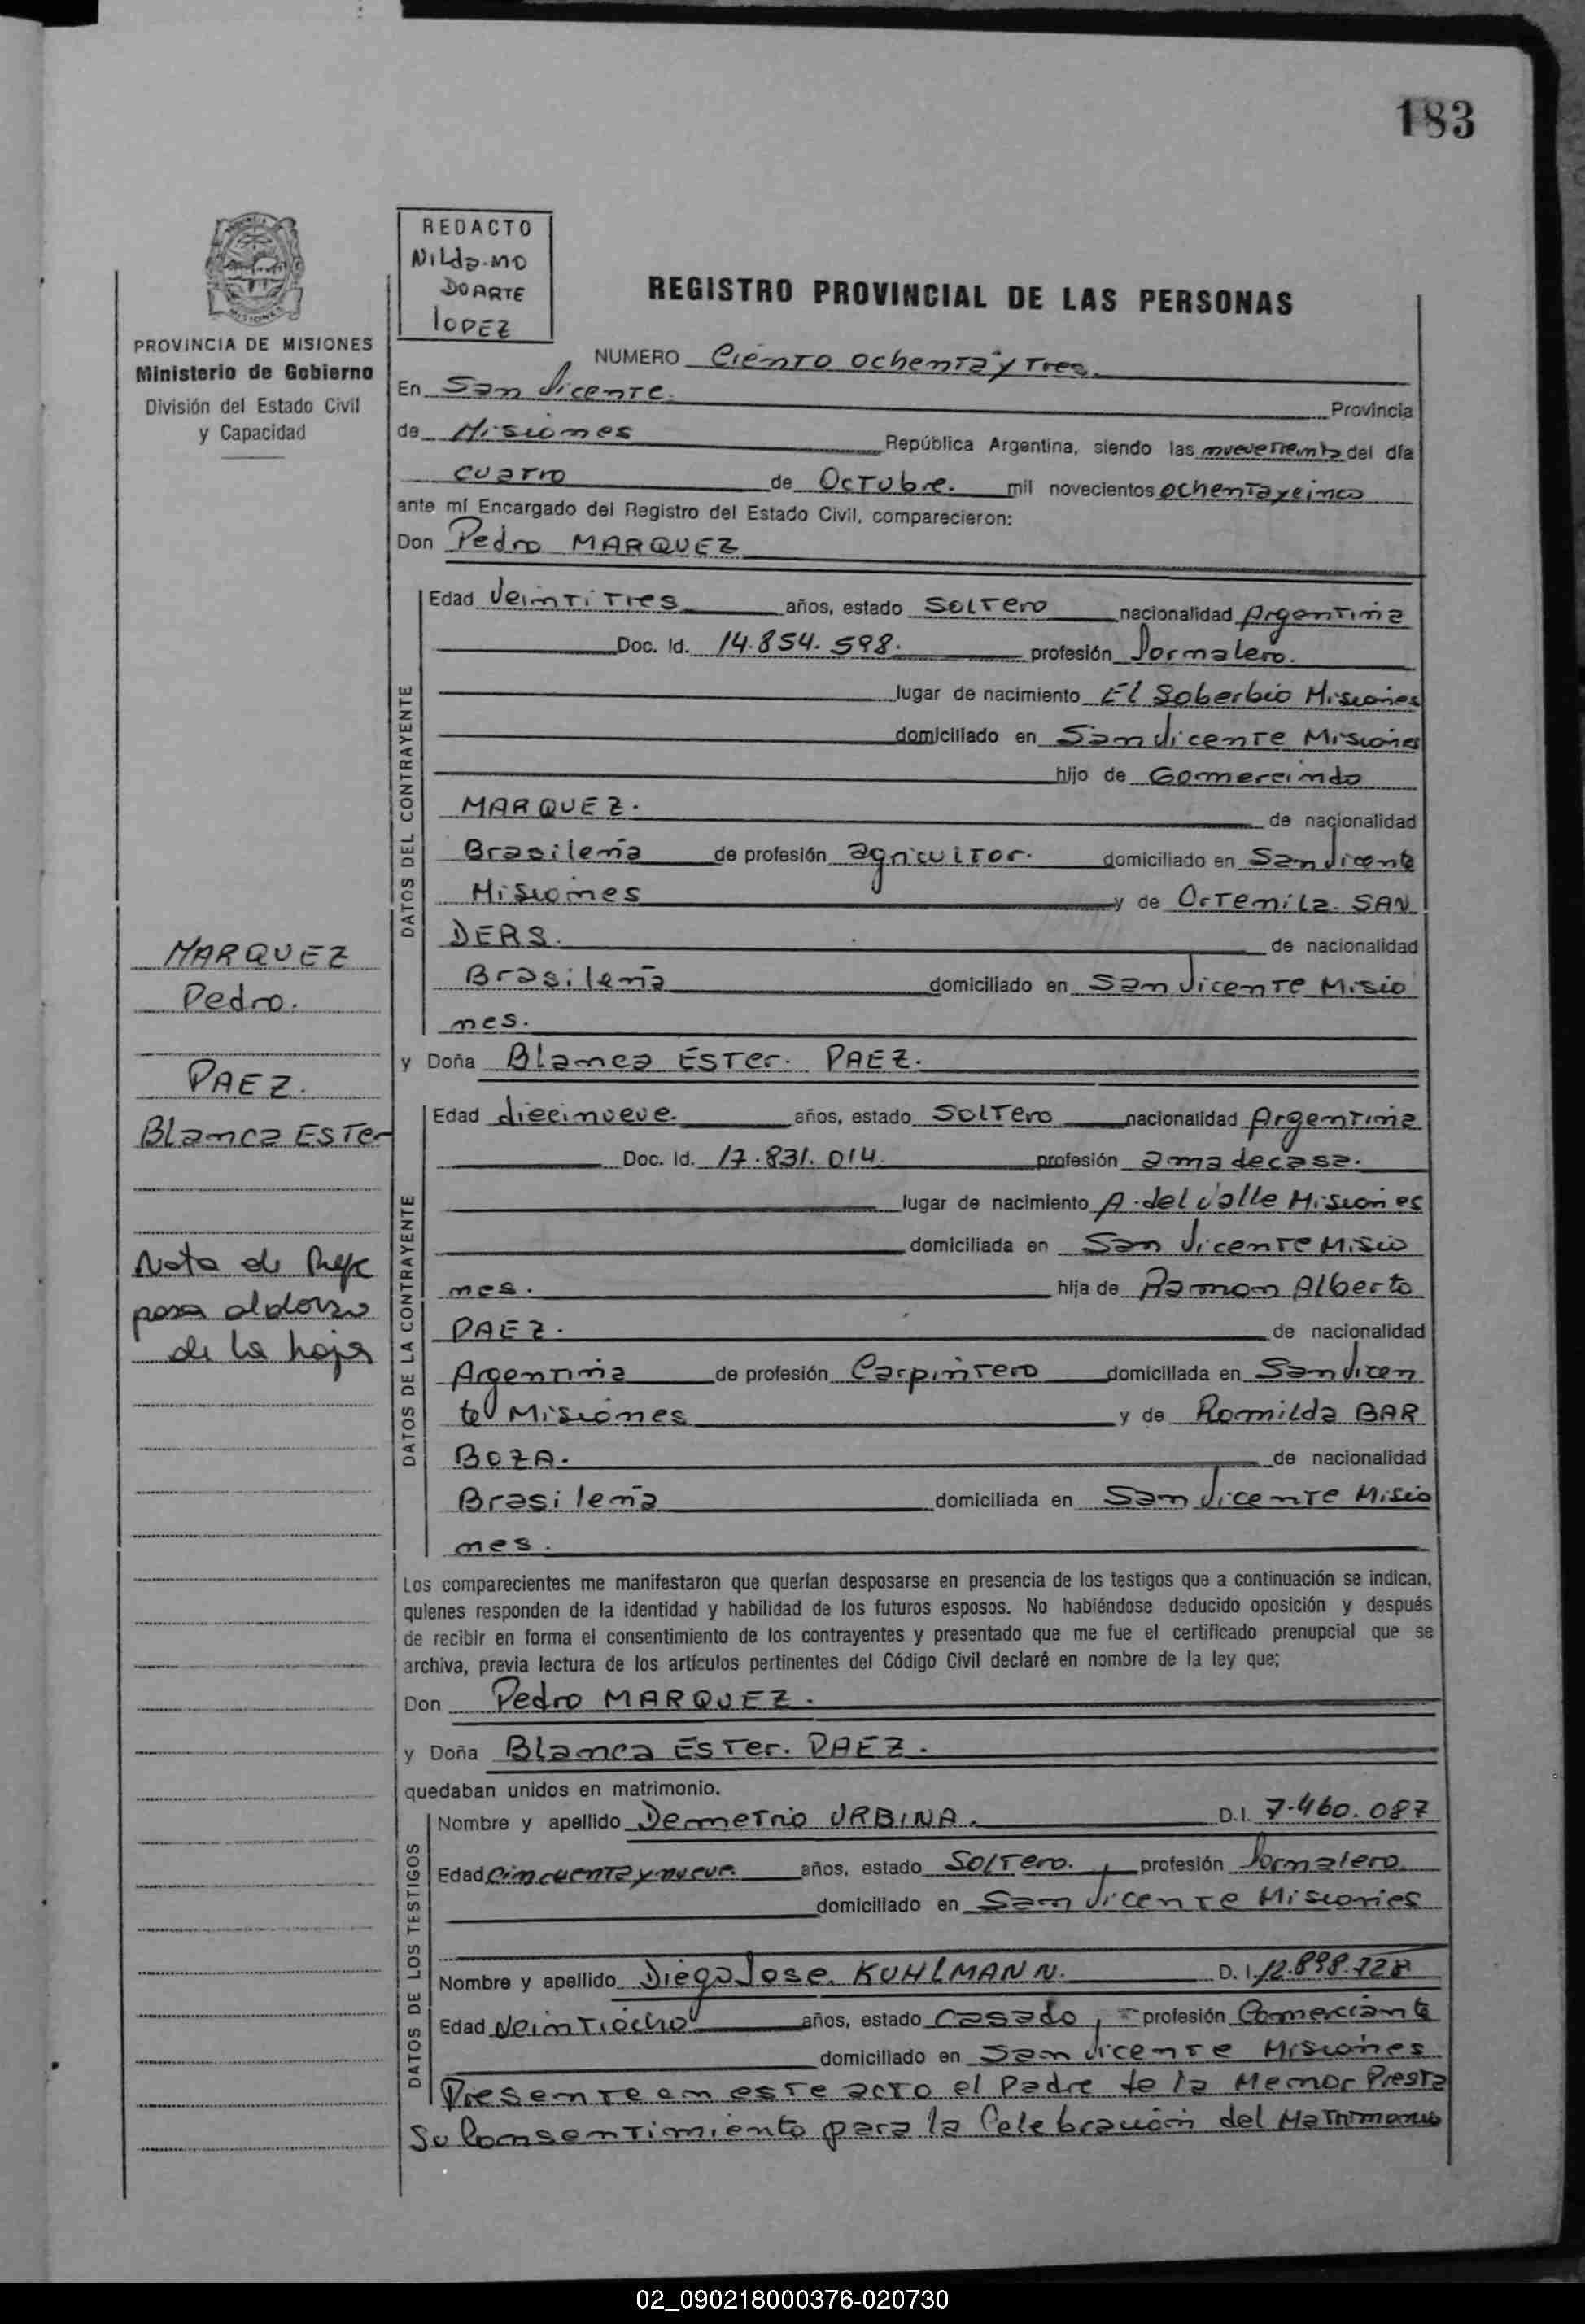 183
REDACTO
Nilda. MO
DOARTE
lOPEZ
REGISTRO PROVINCIAL DE LAS PERSONAS
PROVINCIA DE MISIONES
Ministerio de Gobierno
División del Estado Civil
y Capacidad
NUMERO Ciento ochenta y Tres.
En San Vicente. Provincia
de Misiones República Argentina, siendo las nueve treinta del día
cuatro de Octubre. mil novecientos ochenta y cinco
ante mí Encargado del Registro del Estado Civil, comparecieron:
Don Pedro MARQUEZ
DATOS DEL CONTRAYENTE
Edad Veinti Tres años, estado Soltero nacionalidad Argentina
Doc. Id. 14.854.598. profesión Jornalero.
lugar de nacimiento El Soberbio Misiones
domiciliado en San Vicente Misiones
hijo de Gomercindo
MARQUEZ. de nacionalidad
Brasileña de profesión agricultor. domiciliado en San Vicente
Misiones y de Ortemila. SAN
DERS. de nacionalidad
Brasileña domiciliado en San Vicente Misio
nes.
y Doña Blanca Ester. PAEZ.
MARQUEZ
Pedro.
PAEZ.
Blanca Ester
Nota de Refe
pasa al dorso
de la hoja
DATOS DE LA CONTRAYENTE
Edad diecinueve. años, estado Soltero nacionalidad Argentina
Doc. Id. 17.831.014. profesión ama de casa.
lugar de nacimiento A. del Valle Misiones
domiciliada en San Vicente Misio
nes. hija de Ramon Alberto
PAEZ. de nacionalidad
Argentina de profesión Carpintero domiciliada en San Vicen
te Misiones y de Romilda BAR
BOZA. de nacionalidad
Brasileña domiciliada en San Vicente Misio
nes.
Los comparecientes me manifestaron que querían desposarse en presencia de los testigos que a continuación se indican,
quienes responden de la identidad y habilidad de los futuros esposos. No habiéndose deducido oposición y después
de recibir en forma el consentimiento de los contrayentes y presentado que me fue el certificado prenupcial que se
archiva, previa lectura de los artículos pertinentes del Código Civil declaré en nombre de la ley que;
Don Pedro MARQUEZ.
y Doña Blanca Ester. PAEZ.
quedaban unidos en matrimonio.
DATOS DE LOS TESTIGOS
Nombre y apellido Demetrio URBINA. D.I. 7.460.087
Edad cincuenta y nueve años, estado Soltero. profesión Jornalero
domiciliado en San Vicente Misiones
Nombre y apellido Diego Jose. KUHLMANN. D.I. 12.898.728
Edad Veintiocho años, estado Casado, profesión Comerciante
domiciliado en San Vicente Misiones
Presente en este acto el Padre de la Menor Presta
Su Consentimiento para la Celebración del Matrimonio
02_090218000376-020730